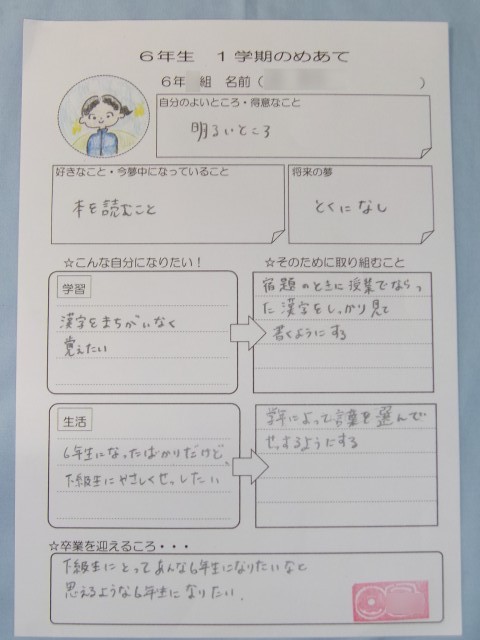 6年生 1学期のめあて
6年 組 名前( )
自分のよいところ・得意なこと
明るいところ
好きなこと・今夢中になっていること
本を読むこと
将来の夢
とくになし
☆こんな自分になりたい!
☆そのために取り組むこと
学習
漢字をまちがいなく
覚えたい
宿題のときに授業でならっ
た漢字をしっかり見て
書くようにする
生活
6年生になったばかりだけど、
下級生にやさしくせっしたい
学年によって言葉を選んで
せっするようにする
☆卒業を迎えるころ・・・
下級生にとってあんな6年生になりたいなと
思えるような6年生になりたい.